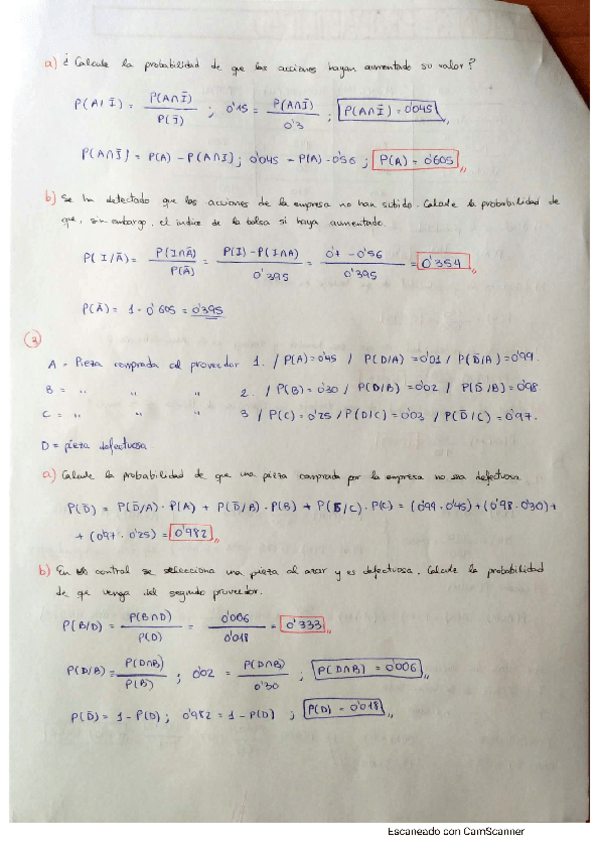 a) ¿ Calcule la probabilidad de que las acciones hayan aumentado su valor?
P(A/Ī) = P(A∩Ī)/P(Ī) ; 0'15 = P(A∩Ī)/0'3 ; P(A∩Ī) = 0'045,,
P(A∩Ī) = P(A) - P(A∩I) ; 0'045 = P(A) - 0'56 ; P(A) = 0'605,,
b) Se ha detectado que las acciones de la empresa no han subido. Calcule la probabilidad de
que, sin embargo, el índice de la bolsa si haya aumentado.
P(I/Ā) = P(I∩Ā)/P(Ā) = P(I) - P(I∩A)/0'395 = 0'7 - 0'56/0'395 = 0'354,,
P(Ā) = 1 - 0'605 = 0'395
3
A = Pieza comprada al proveedor 1. / P(A) = 0'45 / P(D/A) = 0'01 / P(D̄/A) = 0'99.
B = " " " 2. / P(B) = 0'30 / P(D/B) = 0'02 / P(D̄/B) = 0'98
C = " " " 3 / P(C) = 0'25 / P(D/C) = 0'03 / P(D̄/C) = 0'97.
D = pieza defectuosa.
a) Calcule la probabilidad de que una pieza comprada por la empresa no sea defectuosa
P(D̄) = P(D̄/A) · P(A) + P(D̄/B) · P(B) + P(D̄/C) · P(C) = (0'99 · 0'45) + (0'98 · 0'30) +
+ (0'97 · 0'25) = 0'982,,
b) En control se selecciona una pieza al azar y es defectuosa. Calcule la probabilidad
de que venga del segundo proveedor.
P(B/D) = P(B∩D)/P(D) = 0'006/0'018 = 0'333,,
P(D/B) = P(D∩B)/P(B) ; 0'02 = P(D∩B)/0'30 ; P(D∩B) = 0'006,,
P(D̄) = 1 - P(D) ; 0'982 = 1 - P(D) ; P(D) = 0'018,,
Escaneado con CamScanner